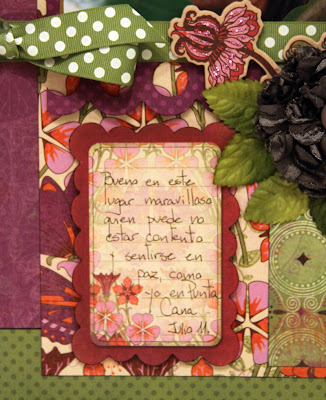 Bueno en este
lugar maravilloso
quien puede no
estar contento
y sentirse en
paz, como
yo en Punta
Cana
Julio 11.